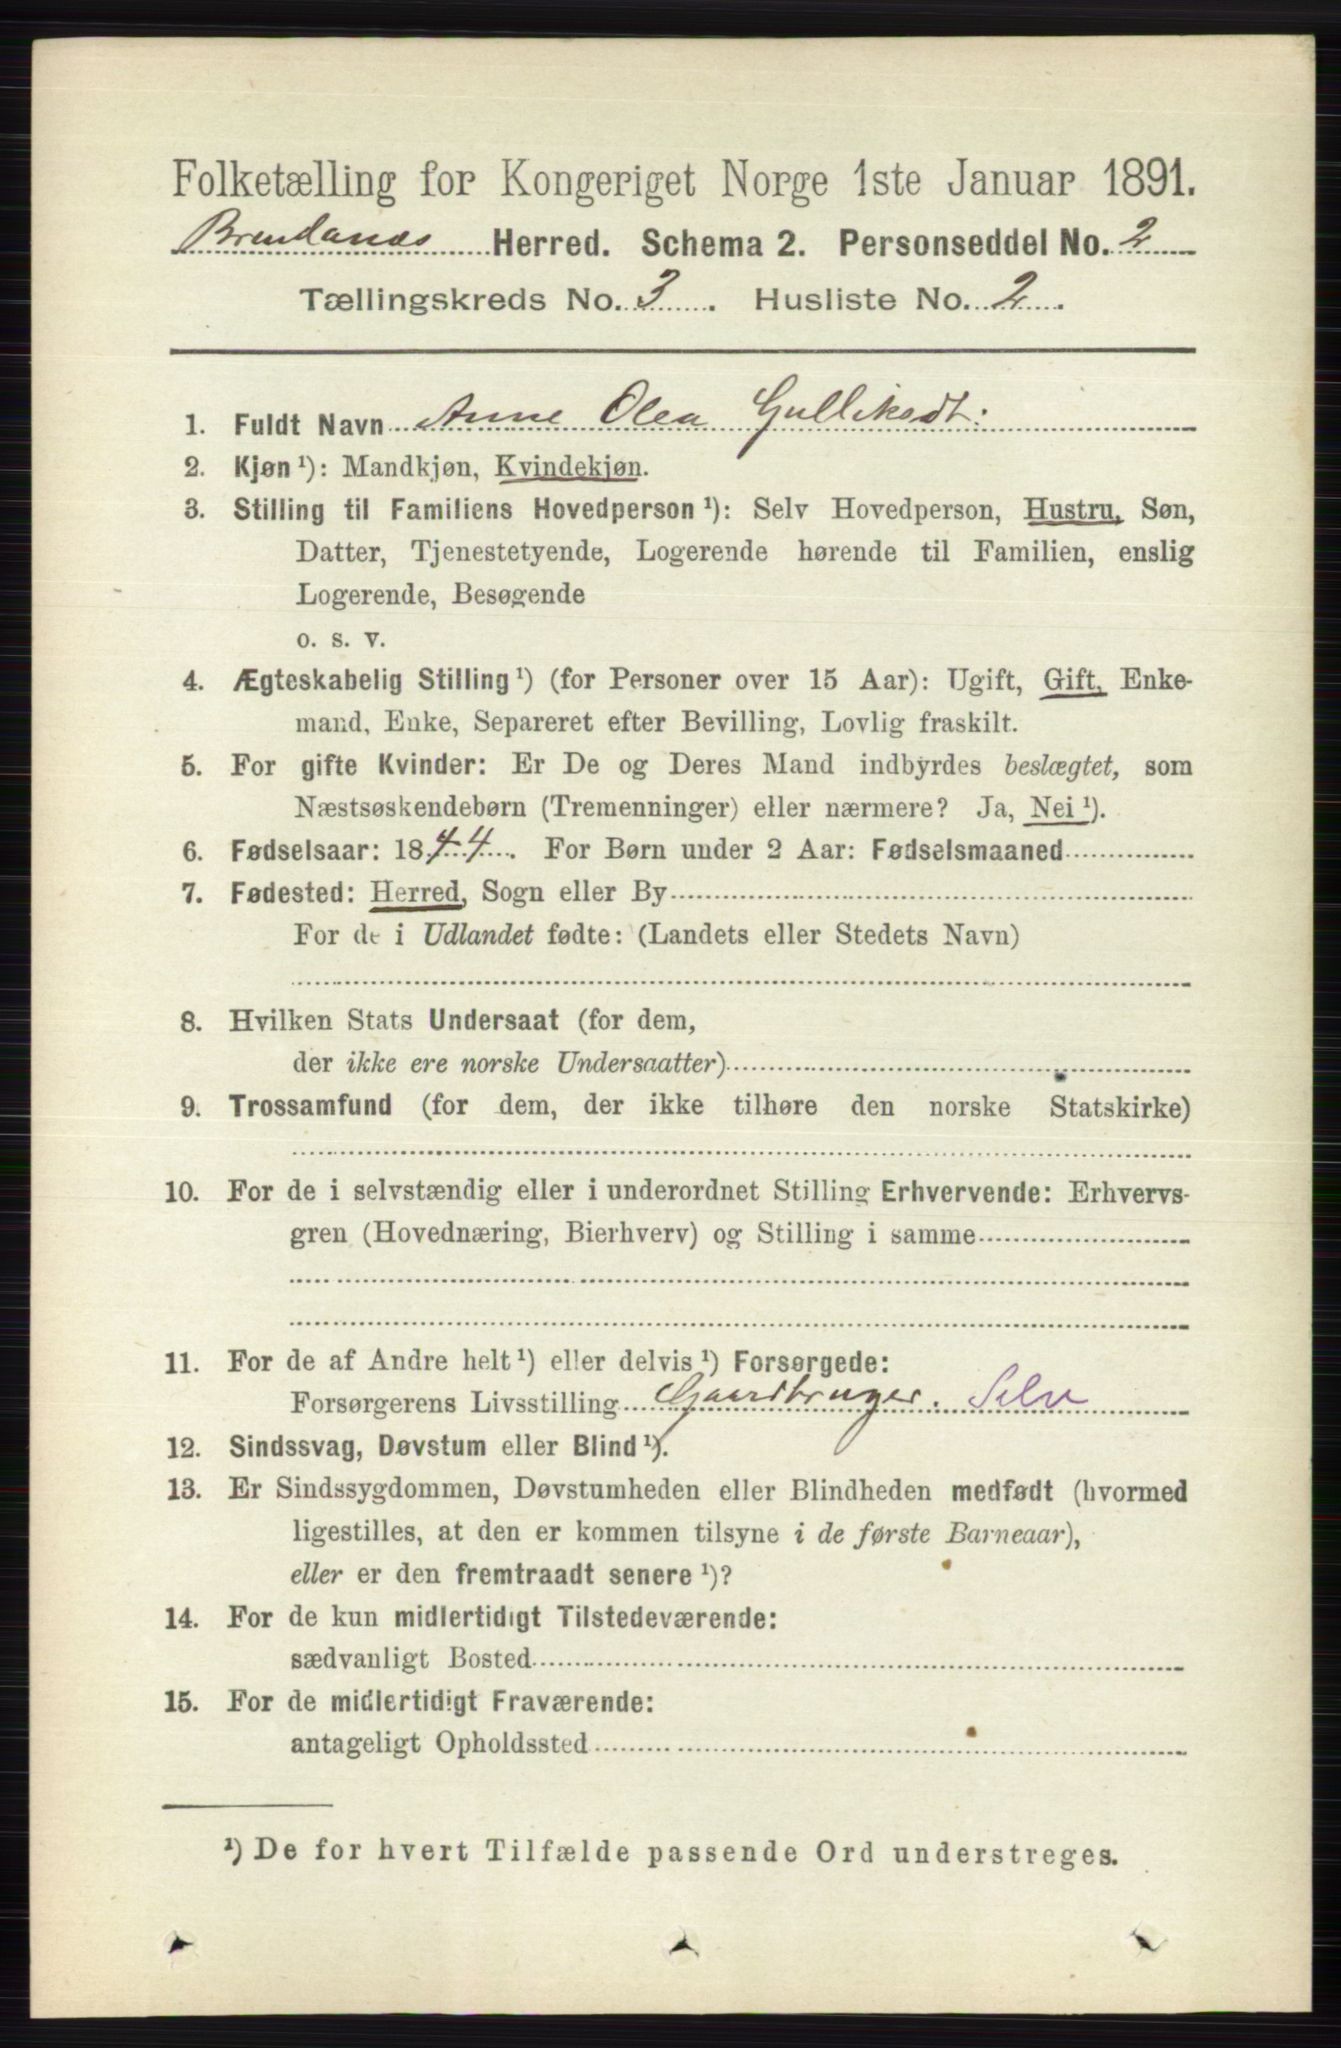 Folketælling for Kongeriget Norge 1ste Januar 1891.
Brunlanæs Herred. Schema 2. Personseddel No. 2
Tællingskreds No. 3. Husliste No. 2.
1. Fuldt Navn Anne Olea Gulliksdt:
2. Kjøn ¹): Mandkjøn, Kvindekjøn.
3. Stilling til Familiens Hovedperson ¹): Selv Hovedperson, Hustru, Søn,
Datter, Tjenestetyende, Logerende hørende til Familien, enslig
Logerende, Besøgende
o. s. v.
4. Ægteskabelig Stilling ¹) (for Personer over 15 Aar): Ugift, Gift, Enke-
mand, Enke, Separeret efter Bevilling, Lovlig fraskilt.
5. For gifte Kvinder: Er De og Deres Mand indbyrdes beslægtet, som
Næstsøskendebørn (Tremenninger) eller nærmere? Ja, Nei ¹).
6. Fødselsaar: 1844. For Børn under 2 Aar: Fødselsmaaned
7. Fødested: Herred, Sogn eller By
For de i Udlandet fødte: (Landets eller Stedets Navn)
8. Hvilken Stats Undersaat (for dem,
der ikke ere norske Undersaatter)
9. Trossamfund (for dem, der ikke tilhøre den norske Statskirke)
10. For de i selvstændig eller i underordnet Stilling Erhvervende: Erhvervs-
gren (Hovednæring, Bierhverv) og Stilling i samme
11. For de af Andre helt ¹) eller delvis ¹) Forsørgede:
Forsørgerens Livsstilling Gaardbruger. Selv
12. Sindssvag, Døvstum eller Blind ¹).
13. Er Sindssygdommen, Døvstumheden eller Blindheden medfødt (hvormed
ligestilles, at den er kommen tilsyne i de første Barneaar),
eller er den fremtraadt senere ¹)?
14. For de kun midlertidigt Tilstedeværende:
sædvanligt Bosted
15. For de midlertidigt Fraværende:
antageligt Opholdssted
¹) De for hvert Tilfælde passende Ord understreges.